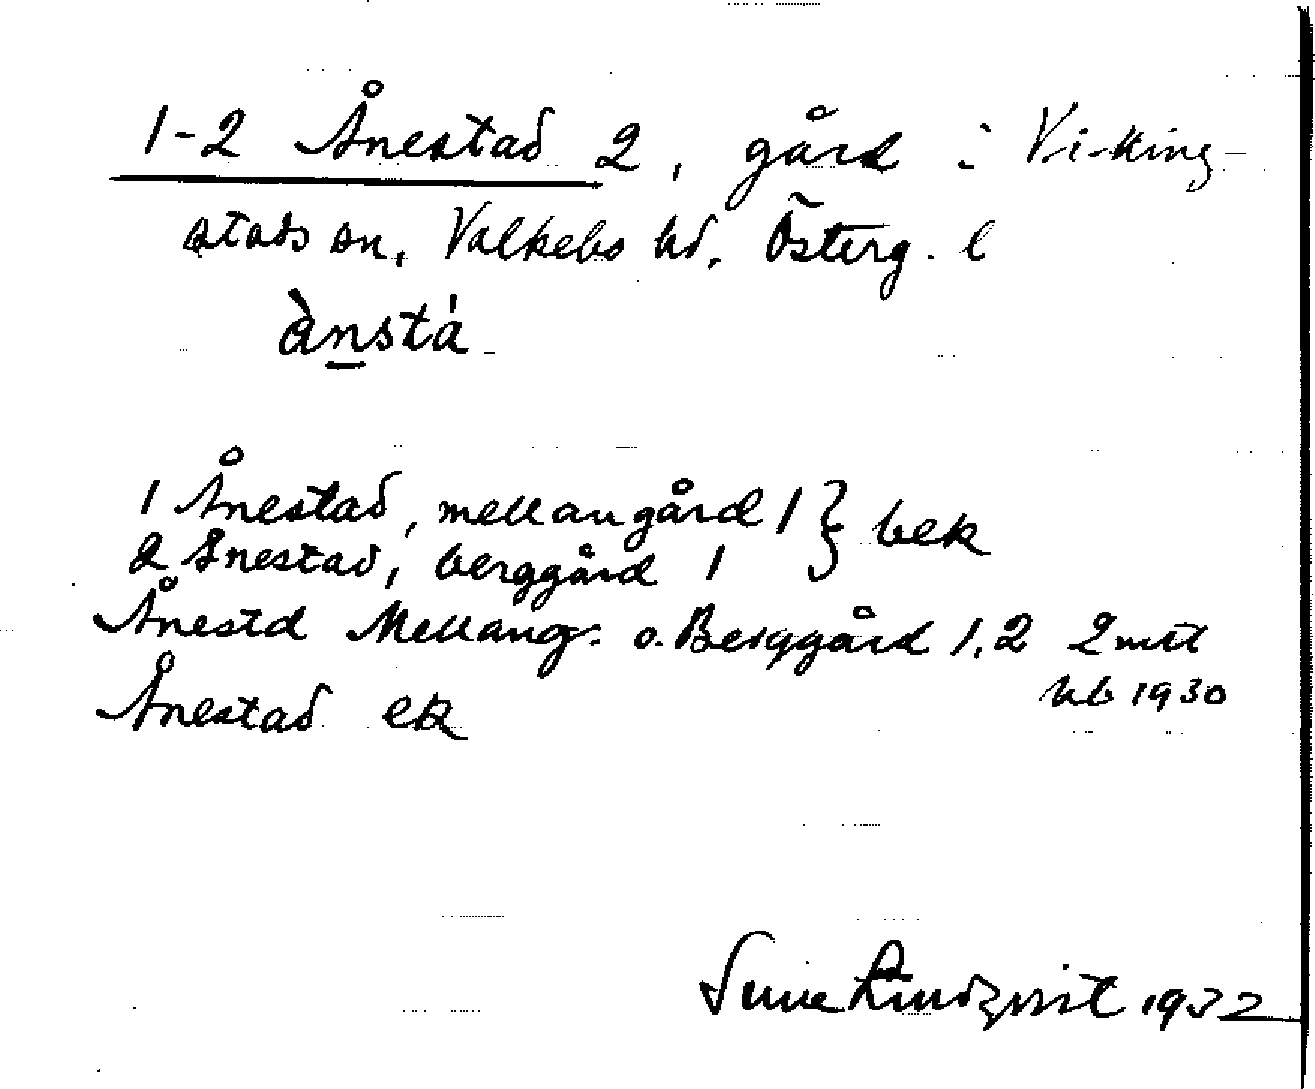 1-2 Ånestad 2, gård i Viking-
stads sn, Valkebo hd. Österg. l
ånstá
1 Ånestad, mellangård 1 } bek
2 Ånestad, berggård 1
Ånestd Mellang. o. Berggård 1,2 2 mtl
hb 1930
Ånestad ek
Sune Lindqvist 1932